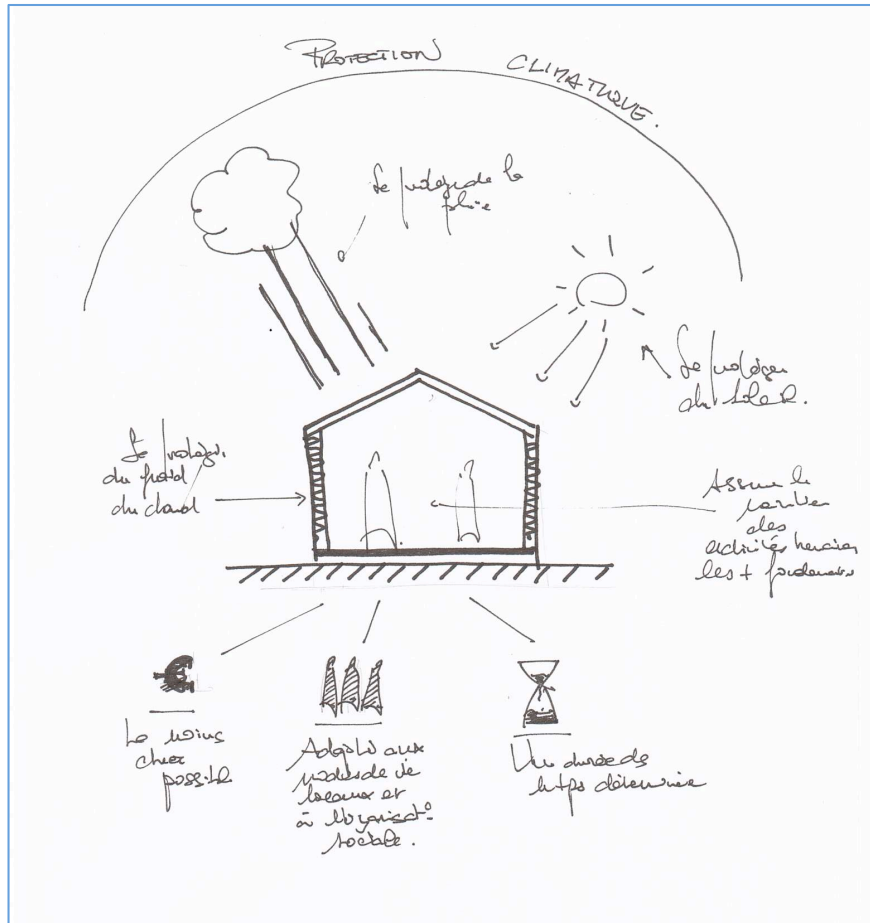 PROTECTION CLIMATIQUE.
Se protéger de la
pluie
Se protéger
du soleil.
Se protéger
du froid
du chaud
Assurer le
des
activités humaines
les +
Le moins
cher
possible
Adapté aux
modes de vie
locaux et
à l'organisat°
sociale.
Une durée de
tps déterminée